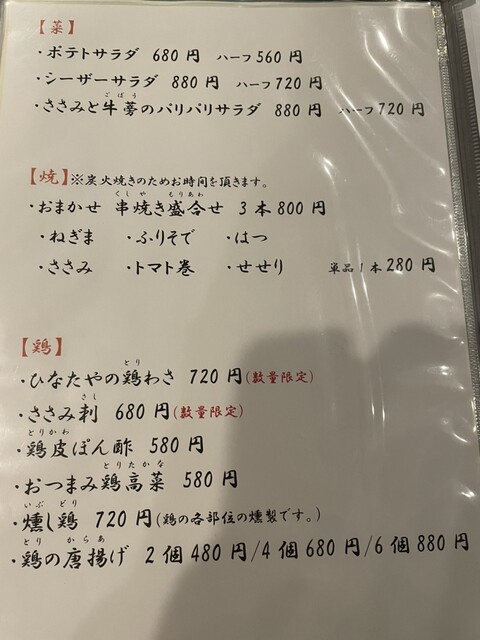 【菜】
・ポテトサラダ 680円 ハーフ560円
・シーザーサラダ 880円 ハーフ720円
ごぼう
・ささみと牛蒡のパリパリサラダ 880円 ハーフ720円
【焼】※炭火焼きのためお時間を頂きます。
くしや もりあわ
・おまかせ 串焼き盛合せ 3本800円
・ねぎま ・ふりそで ・はつ
・ささみ ・トマト巻 ・せせり 単品1本280円
【鶏】
とり
・ひなたやの鶏わさ 720円(数量限定)
さし
・ささみ刺 680円(数量限定)
とりかわ
・鶏皮ぽん酢 580円
とりたかな
・おつまみ鶏高菜 580円
いぶ どり
・燻し鶏 720円(鶏の各部位の燻製です。)
とり からあ
・鶏の唐揚げ 2個480円/4個680円/6個880円